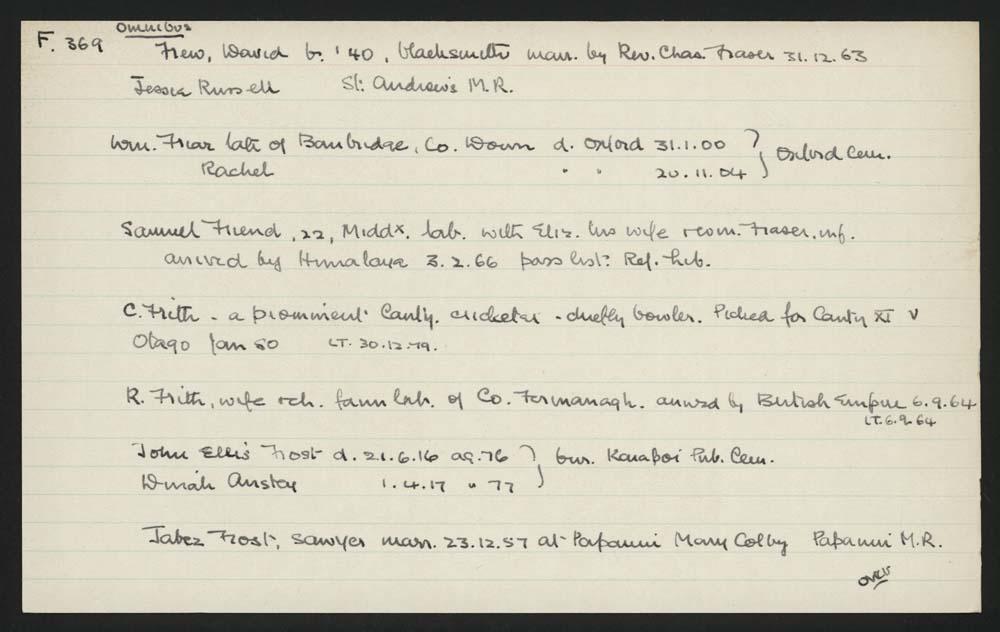 Omnibus
F. 369
Frew, David b. '40, blacksmith marr. by Rev. Chas. Fraser 31.12.63
Jessie Russell St. Andrew's M.R.
Wm. Friar late of Banbridge, Co. Down d. Oxford 31.1.00 } Oxford Cem.
Rachel " " 20.11.04
Samuel Friend, 22, Middx. lab. with Eliz. his wife & com. Fraser, inf.
arrived by Himalaya 3.2.66 pass list: Ref. Lib.
C. Frith - a prominent Canty. cricketer - chiefly bowler. Picked for Canty XI v
Otago Jan 80 LT. 30.12.79.
R. Frith, wife & ch. farm lab. of Co. Fermanagh. arrived by British Empire 6.9.64
LT. 6.9.64
John Ellis Frost d. 21.6.16 ag. 76 } bur. Kaiapoi Pub. Cem.
Dinah Anstey 1.4.17 " 77
Jabez Frost, sawyer marr. 23.12.57 at Papanui Mary Colby Papanui M.R.
over